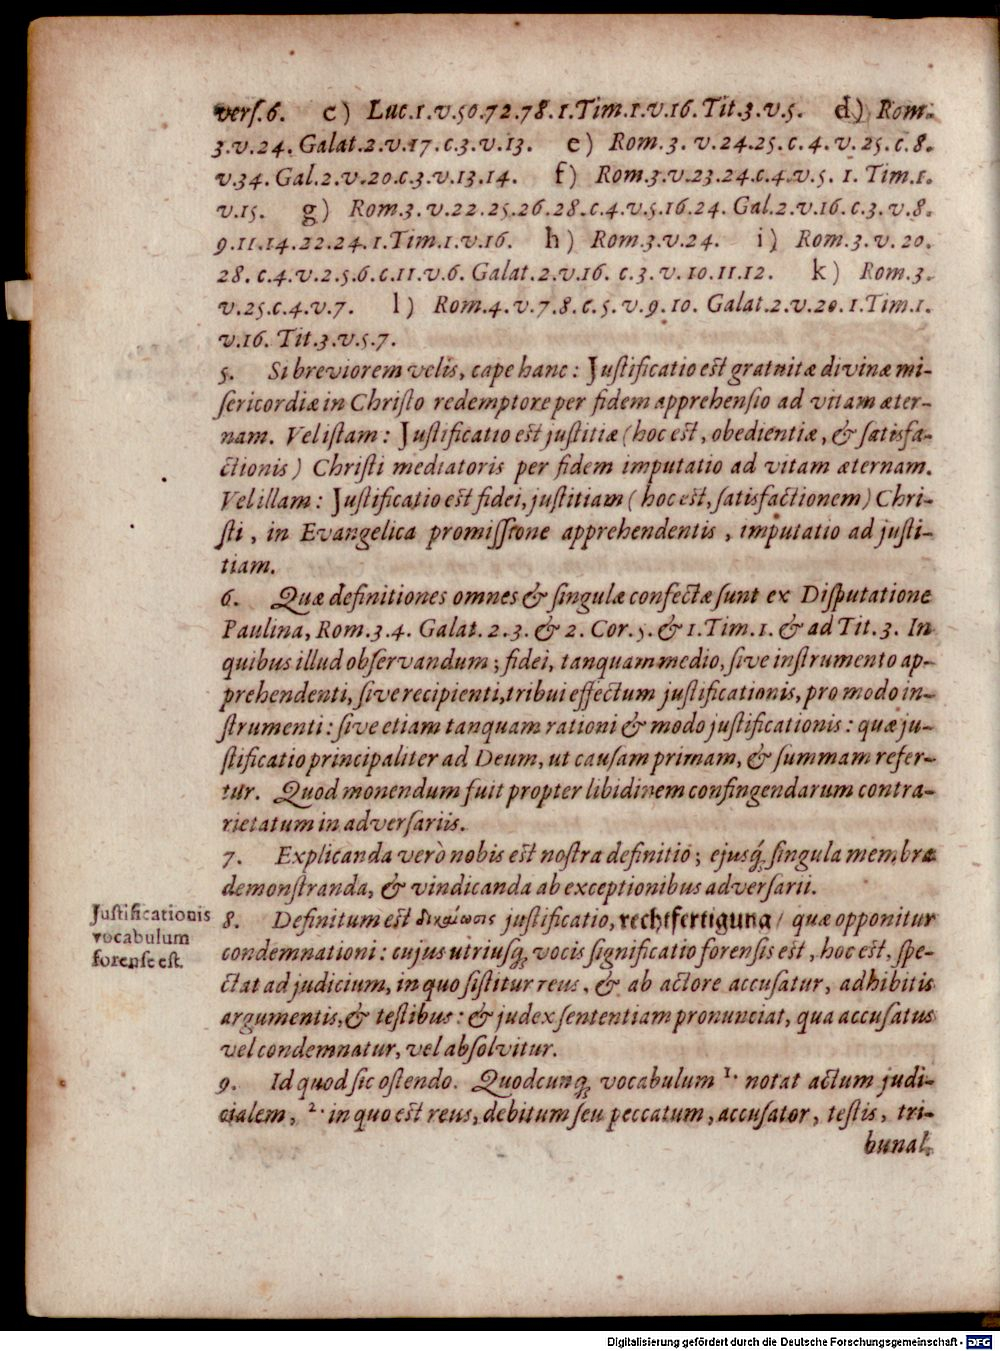 verſ.6. c) Luc.1.v.50.72.78.1.Tim.1.v.16.Tit.3.v.5. d) Rom.
3.v.24. Galat.2.v.17.c.3.v.13. e) Rom.3.v.24.25.c.4.v.25.c.8.
v.34. Gal.2.v.20.c.3.v.13.14. f) Rom.3.v.23.24.c.4.v.5. 1. Tim.1.
v.15. g) Rom.3.v.22.25.26.28.c.4.v.5.16.24. Gal.2.v.16.c.3.v.8.
9.11.14.22.24.1.Tim.1.v.16. h) Rom.3.v.24. i) Rom.3.v.20.
28.c.4.v.2.5.6.c.11.v.6. Galat.2.v.16. c.3.v.10.11.12. k) Rom.3.
v.25.c.4.v.7. l) Rom.4.v.7.8.c.5.v.9.10. Galat.2.v.20.1.Tim.1.
v.16. Tit.3.v.5.7.
5. Si breviorem velis, cape hanc: Juſtificatio eſt gratuitæ divinæ mi-
ſericordiæ in Chriſto redemptore per fidem apprehenſio ad vitam æter-
nam. Vel iſtam: Juſtificatio eſt juſtitiæ (hoc eſt, obedientiæ, & ſatisfa-
ctionis) Chriſti mediatoris per fidem imputatio ad vitam æternam.
Vel illam: Juſtificatio eſt fidei, juſtitiam (hoc eſt, ſatisfactionem) Chri-
ſti, in Evangelica promiſſione apprehendentis, imputatio ad juſti-
tiam.
6. Quæ definitiones omnes & ſingulæ confectæ ſunt ex Diſputatione
Paulina, Rom.3.4. Galat.2.3. & 2. Cor.5. & 1.Tim.1. & ad Tit.3. In
quibus illud obſervandum; fidei, tanquam medio, ſive inſtrumento ap-
prehendenti, ſive recipienti, tribui effectum juſtificationis, pro modo in-
ſtrumenti: ſive etiam tanquam rationi & modo juſtificationis: quæ ju-
ſtificatio principaliter ad Deum, ut cauſam primam, & ſummam refer-
tur. Quod monendum fuit propter libidinem confingendarum contra-
rietatum in adverſariis.
7. Explicanda verò nobis eſt noſtra definitio; ejusq́; ſingula membra
demonſtranda, & vindicanda ab exceptionibus adverſarii.
Juſtificationis
vocabulum
forenſe eſt.
8. Definitum eſt δικαίωσις juſtificatio, rechtfertigung/ quæ opponitur
condemnationi: cujus utriusq́; vocis ſignificatio forenſis eſt, hoc eſt, ſpe-
ctat ad judicium, in quo ſiſtitur reus, & ab actore accuſatur, adhibitis
argumentis, & teſtibus: & judex ſententiam pronunciat, qua accuſatus
vel condemnatur, vel abſolvitur.
9. Id quod ſic oſtendo. Quodcunq́; vocabulum 1. notat actum judi-
cialem, 2. in quo eſt reus, debitum ſeu peccatum, accuſator, teſtis, tri-
bunal,
Digitalisierung gefördert durch die Deutsche Forschungsgemeinschaft - DFG